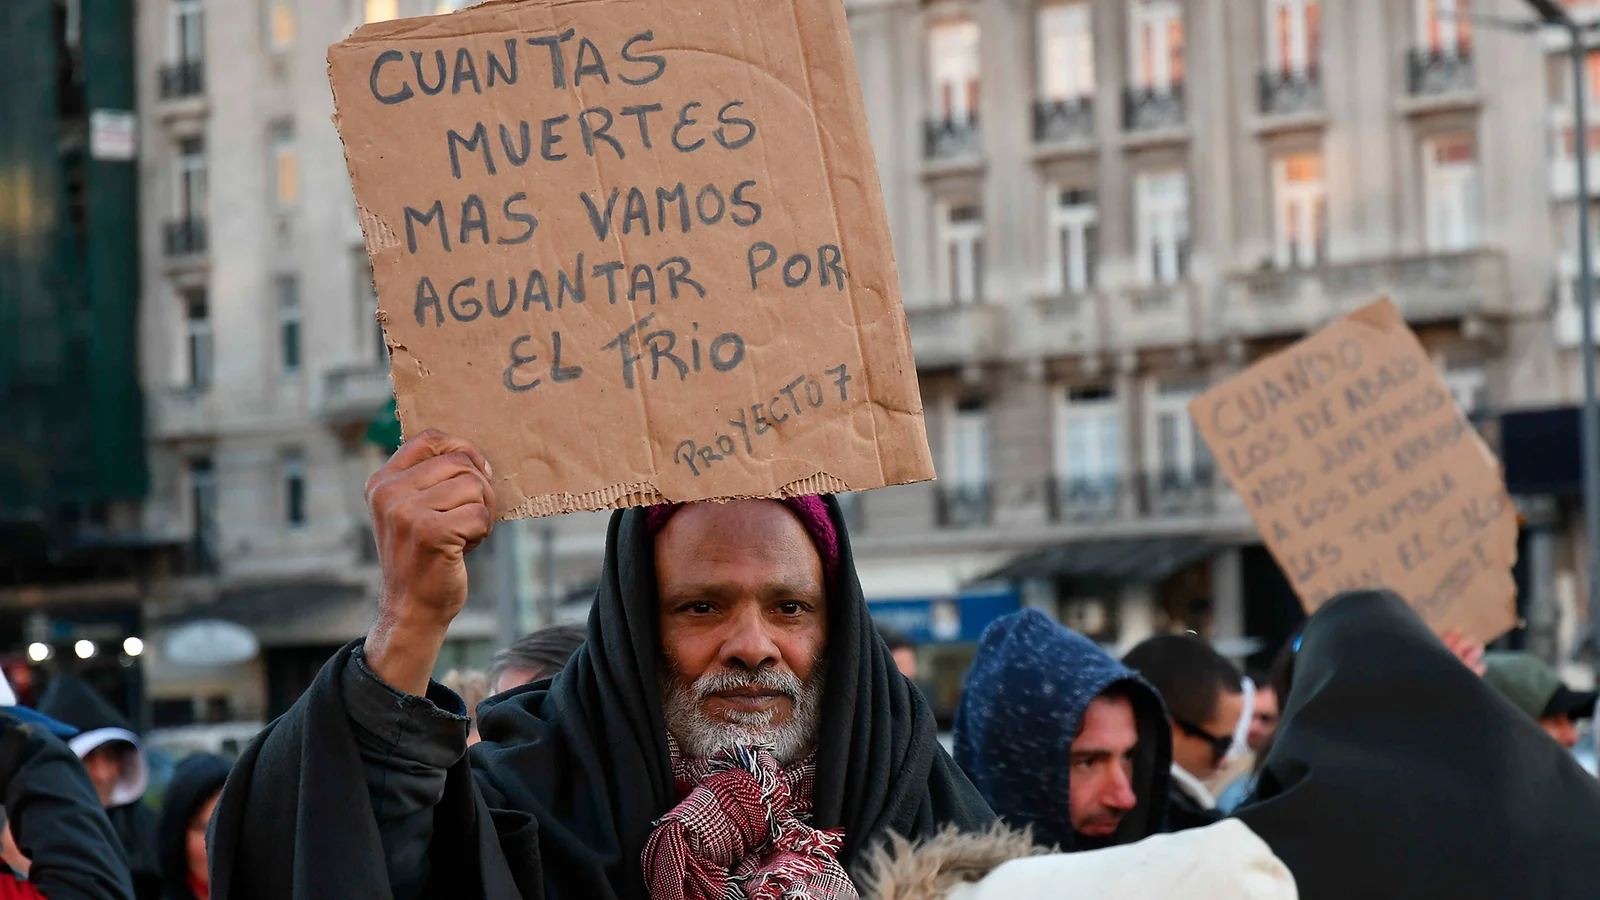 CUANTAS
MUERTES
MAS VAMOS
AGUANTAR POR
EL FRIO
PROYECTO 7
CUANDO
LOS DE ABAJO
NOS JUNTAMOS
A LOS DE ARRIBA
LES TIEMBLA
EL CULO